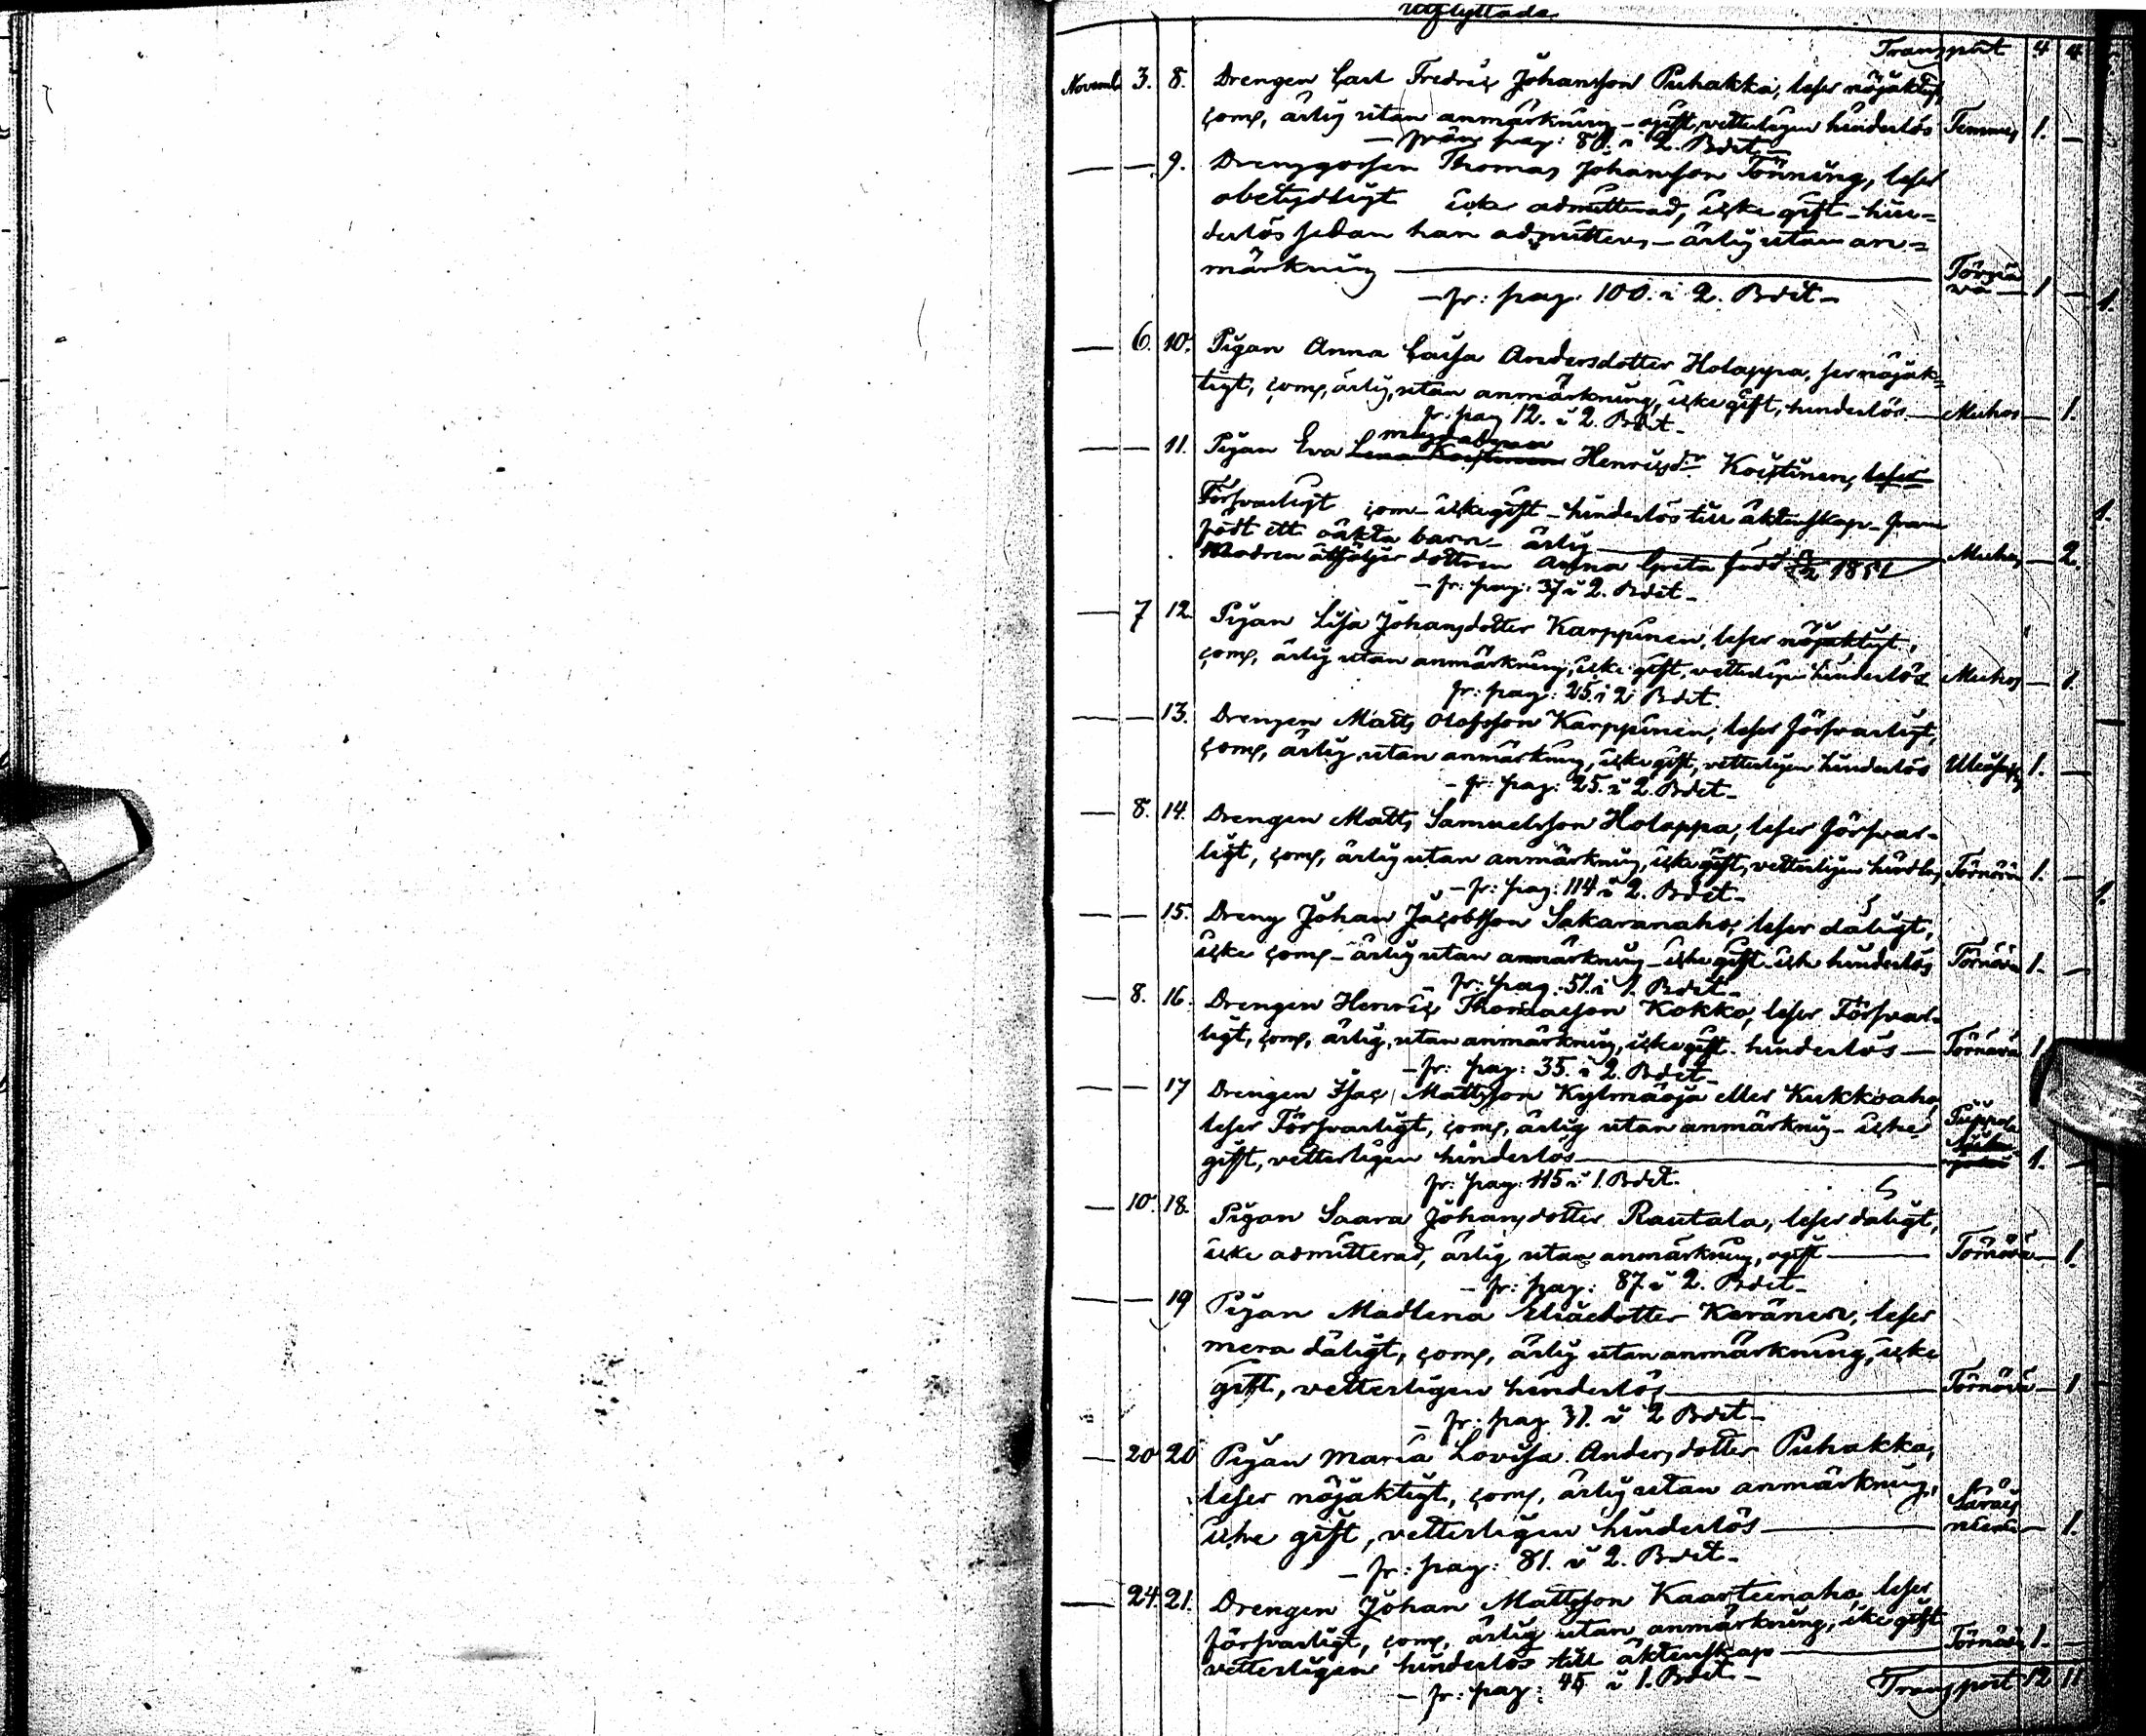 utflyttade
Transport 4 4
Novemb 3. 8. Drengen Carl Fredric Johansson Puhakka, leser nöjaktigt,
com, ärlig utan anmärkning - ogift, vetterligen hinderlös Temmes 1. —
— från pag: 80. i 2. Bdet —
— — 9. Drenggossen Thomas Johansson Tönning, leser
obetydligt icke admitterad, icke gift - hin=
derlös sedan han admitteras - ärlig utan an=
märkning — Törnä
vä — 1 —
— fr: pag: 100. i 2. Bdet — 1.
— 6. 10. Pigan Anna Caisa Andersdotter Holappa, ser nöjak=
tigt, com, ärlig, utan anmärkning, icke gift, hinderlös — Muhos — 1.
fr: pag 12. i 2. Bdet —
— — 11. Pigan Eva Lena Koistinen Henricsdr Koistinen, leser
Försvarligt com - icke gift - hinderlös till äktenskap - fram
födt ett oäkta barn - ärlig — Muhos — 2.
Modren åtföljer dottren Anna Greta född 1851
— fr: pag: 37 i 2. Bdet —
— 7 12 Pigan Lisa Johansdotter Karppinen, leser nöjaktigt,
com, ärlig utan anmärkning, icke gift, vetterligen hinderlös Muhos — 1.
fr: pag: 25. i 2 Bdet.
— — 13. Drengen Matts Olofsson Karppinen, leser försvarligt,
com, ärlig utan anmärkning, icke gift, vetterligen hinderlös 1. —
— fr: pag: 25. i 2. Bdet —
— 8. 14. Drengen Matts Samuelsson Holappa, leser försvar-
ligt, com, ärlig utan anmärkning, icke gift, vetterligen Törnävä 1. —
— fr: pag: 114 i 2. Bdet — 1.
— — 15. Dreng Johan Jacobsson Sakaranaho, leser dåligt,
icke com - ärlig utan anmärkning - icke gift - hinderlös Törnävä 1. —
fr: pag. 51. i 1. Bdet —
— 8. 16. Drengen Henric Thomasson Kokko, leser Försvar-
ligt, com, ärlig, utan anmärkning, icke gift - hinderlös — Törnävä 1
— fr: pag: 35. i 2. Bdet —
— — 17 Drengen Isac Mattsson Kylmäoja eller Kukkoaho
leser Försvarligt, com, ärlig utan anmärkning - icke Piippola
gift, vetterligen hinderlös — 1. —
fr: pag: 115 i 1. Bdet.
— 10. 18. Pigan Saara Johansdotter Rautala, leser dåligt,
icke admitterad, ärlig utan anmärkning, ogift — Törnävä — 1.
— fr: pag: 87. i 2. Bdet —
— — 19 Pigan Madlena Eliaedotter Keränen, leser
mera dåligt, com, ärlig utan anmärkning, icke
gift, vetterligen hinderlös — Törnävä — 1
— fr: pag 31. i 2 Bdet —
— 20 20 Pigan Maria Lovisa Andersdotter Puhakka,
leser nöjaktigt, com, ärlig utan anmärkning, Säräis
icke gift, vetterligen hinderlös — niemi — 1.
— fr: pag: 81. i 2. Bdet —
— 24. 21. Drengen Johan Mattsson Kaarteenaho, leser
försvarligt, com, ärlig utan anmärkning, icke gift
vetterligen hinderlös till äktenskap — Törnävä 1. —
— fr: pag: 45 i 1. Bdet — Transport 12 11